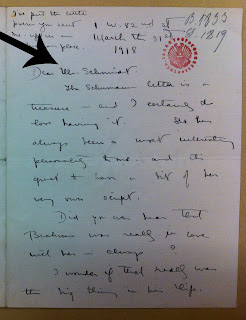 I've put the little
poem you sent
me up in
place.
1 W. 82nd St
March the 31st
1918
B.1833
d.1819
Dear Mr. Schmidt.
The Schumann letter is a
treasure — and I certainly do
love having it. She has
always been a most interesting
personality to me — and it is
great to have a bit of her
very own script.
Did you ever hear that
Brahms was really in love
with her — always?
I wonder if that really was
the big thing in her life.